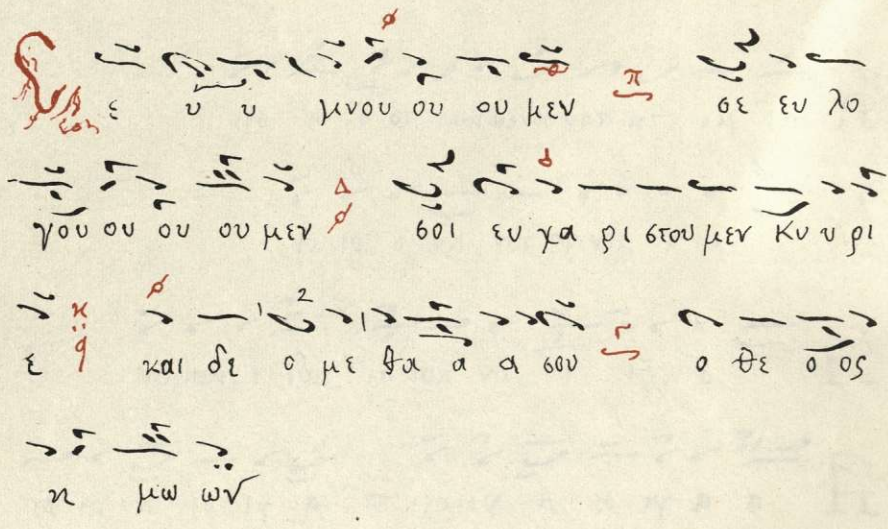 Σε ε υ υ μνου ου ου μεν π σε ευ λο
γου ου ου ου μεν Δ σοι ευ χα ρι στου μεν Κυ υ ρι
ε και δε ο με θα α α σου Γ ο θε ο ος
η μω ων